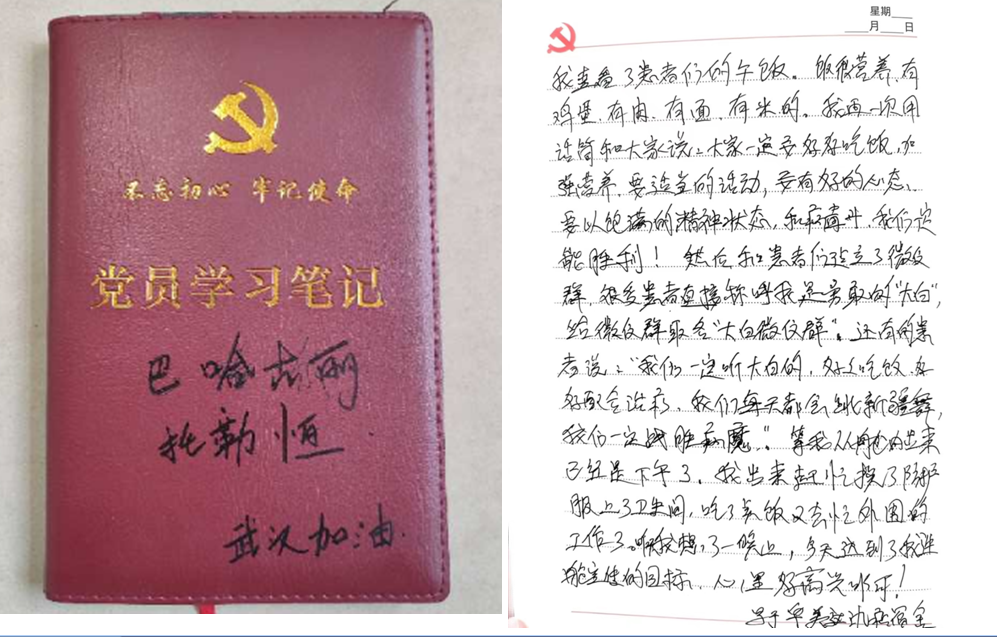 不忘初心 牢记使命
党员学习笔记
巴哈古丽
托勒恒
武汉加油
星期
月 日
我查看了患者们的午饭。饭很营养,有
鸡蛋,有肉,有面,有米的。我再一次用
话筒和大家说:大家一定要好好吃饭,加
强营养,要适当的活动,要有好的心态、
要以饱满的精神状态,和病毒斗,我们定
能胜利!然后和患者们建立了微信
群,很多患者直接称呼我是勇敢的“大白”,
给微信群取名“大白微信群”。还有的患
者说:“我们一定听大白的,好好吃饭,好
好配合治疗,我们每天都会跳新疆舞,
我们一定战胜病魔”。等我从舱内出来
已经是下午了,我出来赶忙换了防护
服上了卫生间,吃了午饭又去忙外围的
工作了。想了一晚上,今天达到了我进
舱的目标,心里好高兴!